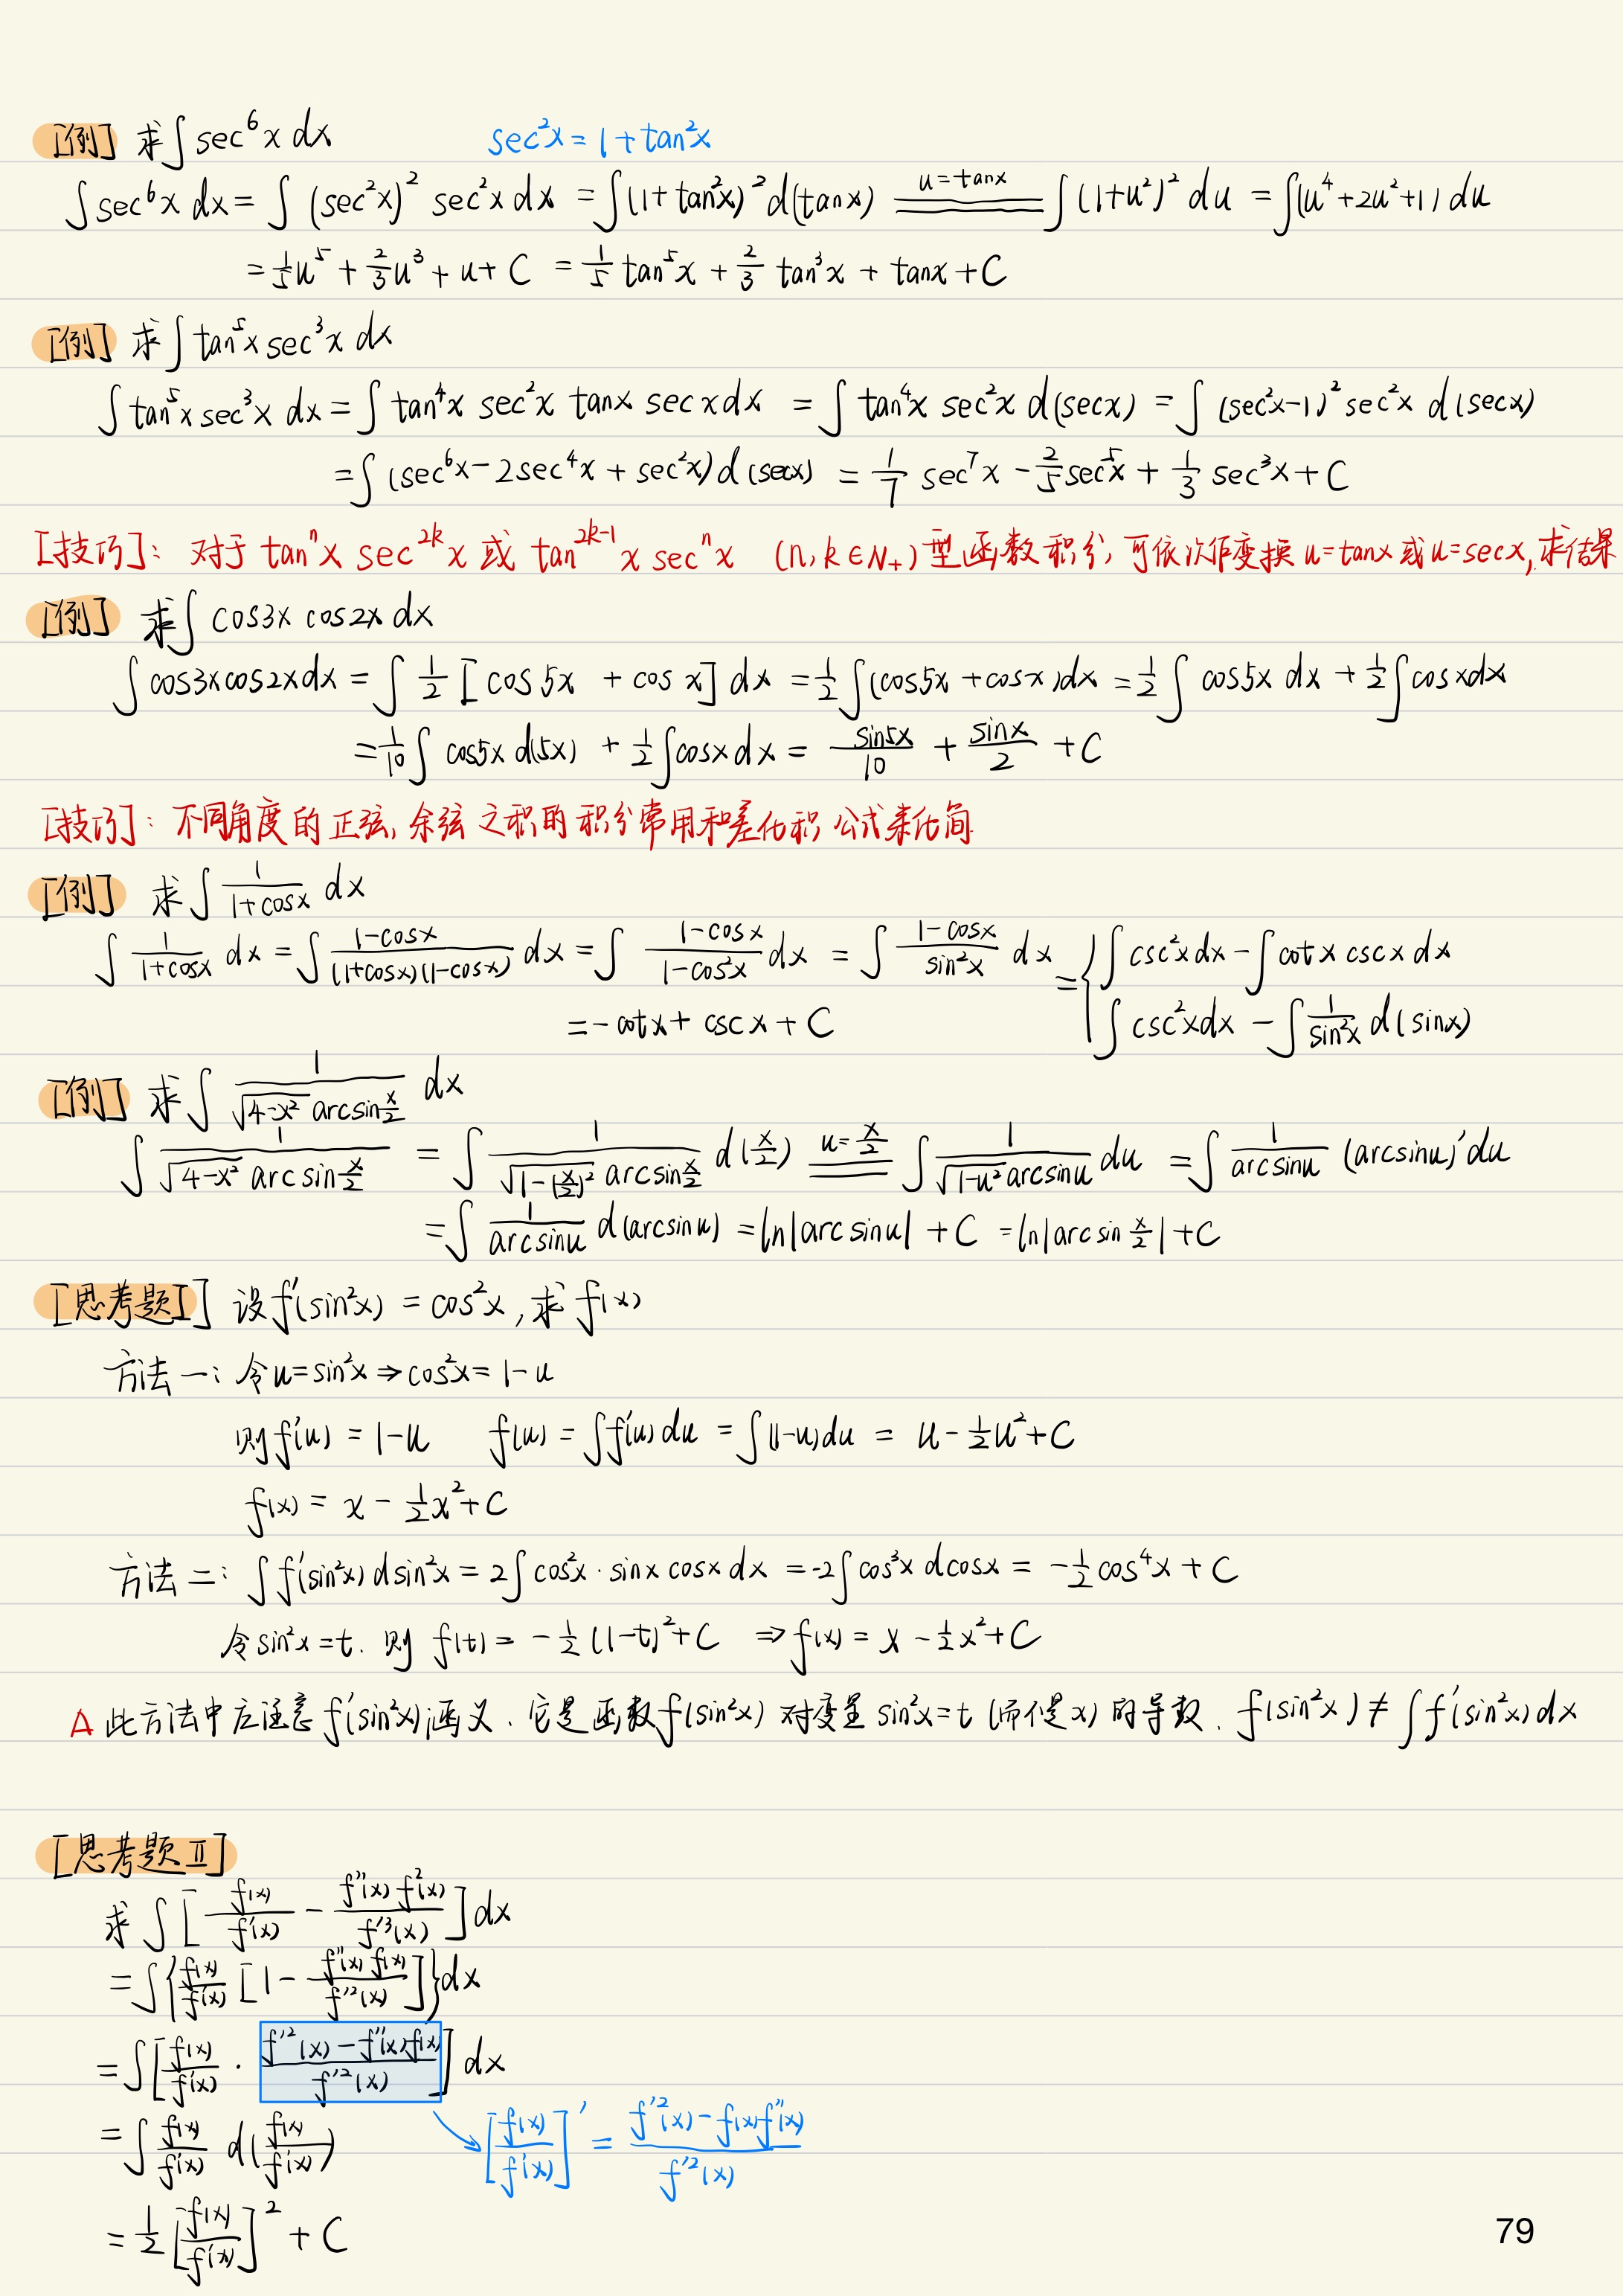 [例] 求∫sec⁶x dx sec²x = 1+tan²x
∫sec⁶x dx = ∫(sec²x)² sec²x dx = ∫(1+tan²x)² d(tanx) ══(u=tanx)══ ∫(1+u²)² du = ∫(u⁴+2u²+1) du
= 1/5 u⁵ + 2/3 u³ + u + C = 1/5 tan⁵x + 2/3 tan³x + tanx + C
[例] 求∫tan⁵x sec³x dx
∫tan⁵x sec³x dx = ∫tan⁴x sec²x tanx secx dx = ∫tan⁴x sec²x d(secx) = ∫(sec²x-1)² sec²x d(secx)
= ∫(sec⁶x - 2sec⁴x + sec²x) d(secx) = 1/7 sec⁷x - 2/5 sec⁵x + 1/3 sec³x + C
[技巧]: 对于 tanⁿx sec²ᵏx 或 tan²ᵏ⁻¹x secⁿx (n, k∈N₊) 型函数积分, 可依次作变换 u=tanx 或 u=secx, 求结果
[例] 求∫cos3x cos2x dx
∫cos3x cos2x dx = ∫ 1/2 [cos5x + cosx] dx = 1/2 ∫(cos5x + cosx)dx = 1/2 ∫cos5x dx + 1/2 ∫cosx dx
= 1/10 ∫cos5x d(5x) + 1/2 ∫cosx dx = sin5x/10 + sinx/2 + C
[技巧]: 不同角度的正弦, 余弦之积的积分常用和差化积公式来化简
[例] 求∫ 1/(1+cosx) dx
∫ 1/(1+cosx) dx = ∫ (1-cosx)/((1+cosx)(1-cosx)) dx = ∫ (1-cosx)/(1-cos²x) dx = ∫ (1-cosx)/sin²x dx = { ∫csc²x dx - ∫cotx cscx dx
∫csc²x dx - ∫ 1/sin²x d(sinx)
= -cotx + cscx + C
[例] 求∫ 1/(√(4-x²) arcsin x/2) dx
∫ 1/(√(4-x²) arcsin x/2) = ∫ 1/(√(1-(x/2)²) arcsin x/2) d(x/2) ══(u=x/2)══ ∫ 1/(√(1-u²) arcsinu) du = ∫ 1/arcsinu (arcsinu)′du
= ∫ 1/arcsinu d(arcsinu) = ln|arcsinu| + C = ln|arcsin x/2| + C
[思考题I] 设f′(sin²x) = cos²x, 求f(x)
方法一: 令u=sin²x ⇒ cos²x = 1-u
则f′(u) = 1-u f(u) = ∫f′(u)du = ∫(1-u)du = u - 1/2 u² + C
f(x) = x - 1/2 x² + C
方法二: ∫f′(sin²x) dsin²x = 2∫cos²x · sinx cosx dx = -2∫cos³x dcosx = -1/2 cos⁴x + C
令sin²x = t. 则 f(t) = -1/2 (1-t)² + C ⇒ f(x) = x - 1/2 x² + C
A 此方法中应注意f′(sin²x)涵义. 它是函数f(sin²x) 对变量 sin²x=t (而不是x) 的导数. f(sin²x) ≠ ∫f′(sin²x)dx
[思考题II]
求 ∫[ f(x)/f′(x) - f″(x)f²(x)/f′³(x) ] dx
= ∫{ f(x)/f′(x) [1 - f″(x)f(x)/f′²(x)] } dx
= ∫[ f(x)/f′(x) · (f′²(x) - f″(x)f(x))/f′²(x) ] dx
= ∫ f(x)/f′(x) d(f(x)/f′(x)) [f(x)/f′(x)]′ = (f′²(x) - f(x)f″(x))/f′²(x)
= 1/2 [f(x)/f′(x)]² + C
79